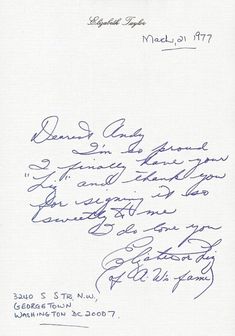 Elizabeth Taylor
Mach, 21 1977
Dearest Andy
I'm so proud
I finally have your
"Liz" and thank you
for signing it so
sweetly to me
I do love you
Elizabeth or Liz
(of A.W's fame)
3240 S STR, N.W,
GEORGETOWN
WASHINGTON DC 20007.